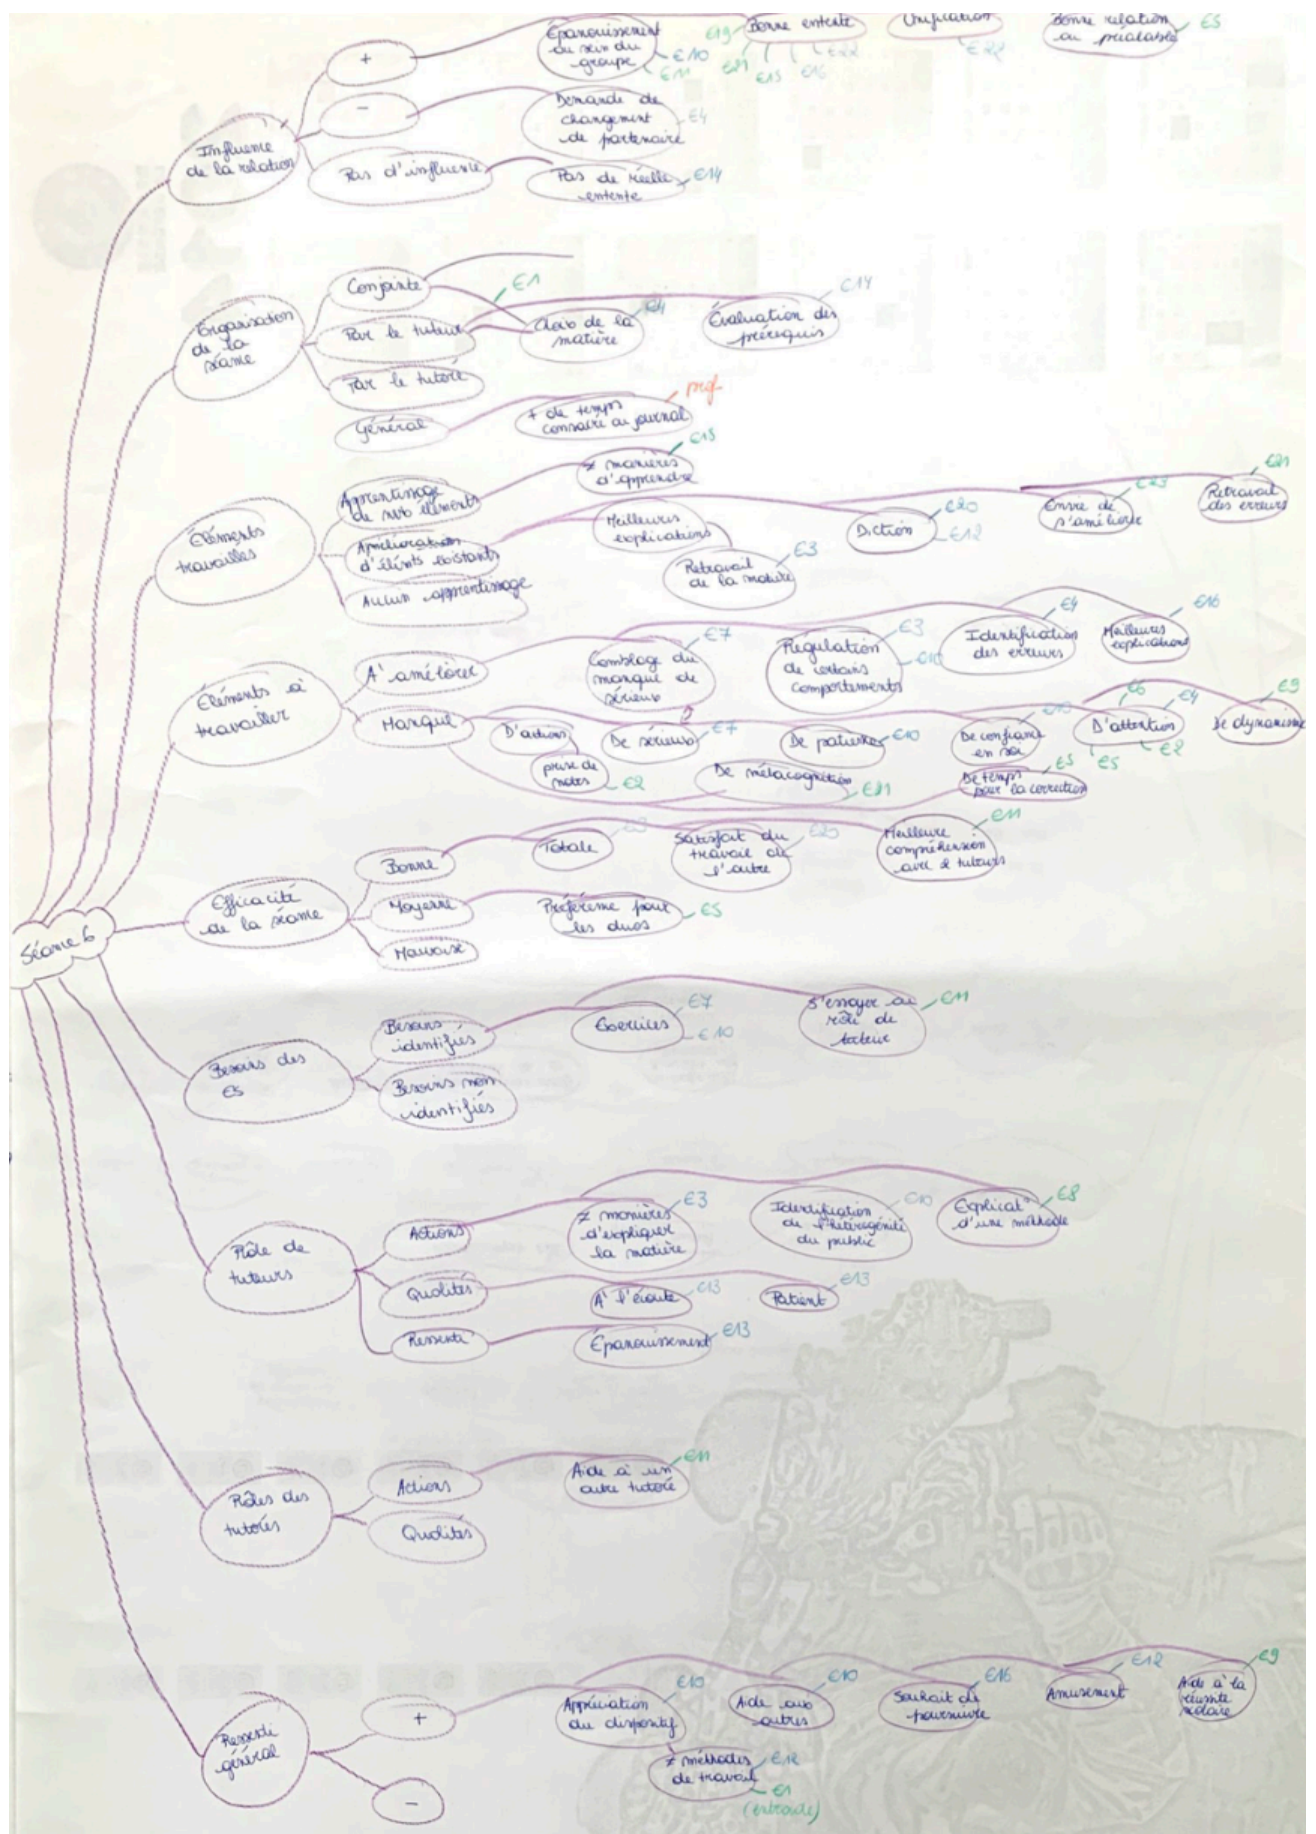 Séance 6
Influence
de la relation
+
Épanouissement
au sein du
groupe
E10
E11
Bonne entente
E19
E21
E15
E16
E22
Unification
E22
Bonne relation
au préalable
E5
-
Demande de
changement
de partenaire
E4
Pas d'influence
Pas de réelle
entente
E14
Organisation
de la
séance
Conjointe
E1
Par le tuteur
Choix de la
matière
E4
Évaluation des
prérequis
E14
Par le tutoré
Général
+ de temps
consacré au journal
prof
Éléments
travaillés
Apprentissage
de nvx éléments
≠ manières
d'apprendre
E15
Amélioration
d'élmts existants
Meilleures
explications
Retravail
de la matière
E3
Diction
E20
E12
Envie de
s'améliorer
E23
Retravail
des erreurs
E21
Aucun apprentissage
Éléments à
travailler
À améliorer
Comblage du
manque de
sérieux
E7
Régulation
de certains
comportements
E3
E10
Identification
des erreurs
E4
Meilleures
explications
E16
Manque
D'actions
prise de
notes
E2
De sérieux
E7
De patience
E10
De confiance
en soi
E10
D'attention
E6
E4
E5
E2
De dynamisme
E9
De métacognition
E21
De temps
pour la correction
E5
Efficacité
de la séance
Bonne
Totale
E3
Satisfait du
travail de
l'autre
E20
Meilleure
compréhension
avec 2 tuteurs
E11
Moyenne
Préférence pour
les duos
E5
Mauvaise
Besoins des
ES
Besoins
identifiés
Exercices
E7
E10
S'essayer au
rôle de
tuteur
E11
Besoins non
identifiés
Rôle de
tuteurs
Actions
≠ manières
d'expliquer
la matière
E3
Identification
de l'hétérogénité
du public
E10
Explicat°
d'une méthode
E8
Qualités
À l'écoute
E13
Patient
E13
Ressenti
Épanouissement
E13
Rôles des
tutorés
Actions
Aide à un
autre tutoré
E11
Qualités
Ressenti
général
+
Appréciation
du dispositif
E10
≠ méthodes
de travail
E12
E1
(entraide)
Aide aux
autres
E10
Souhait de
poursuivre
E16
Amusement
E12
Aide à la
réussite
scolaire
E9
-